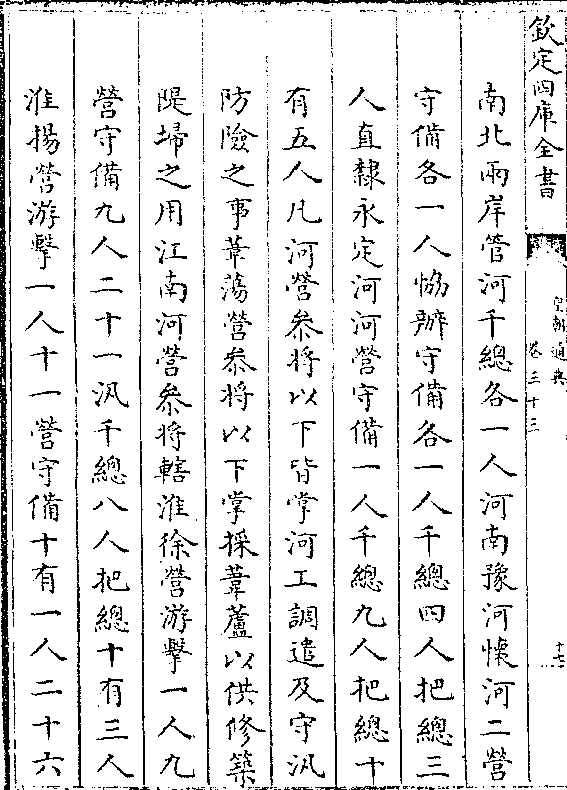 欽定四庫全書
皇朝通典
卷三十三
十七
南北兩岸管河千總各一人河南豫河懷河二營
守備各一人協辦守備各一人千總四人把總三
人直隸永定河河營守備一人千總九人把總十
有五人凡河營叅將以下皆掌河工調遣及守汛
防險之事葦蕩營叅將以下掌採葦蘆以供修築
隄埽之用江南河營叅將轄淮徐營游擊一人九
營守備九人二十一汛千總八人把總十有三人
淮揚營游擊一人十一營守備十有一人二十六